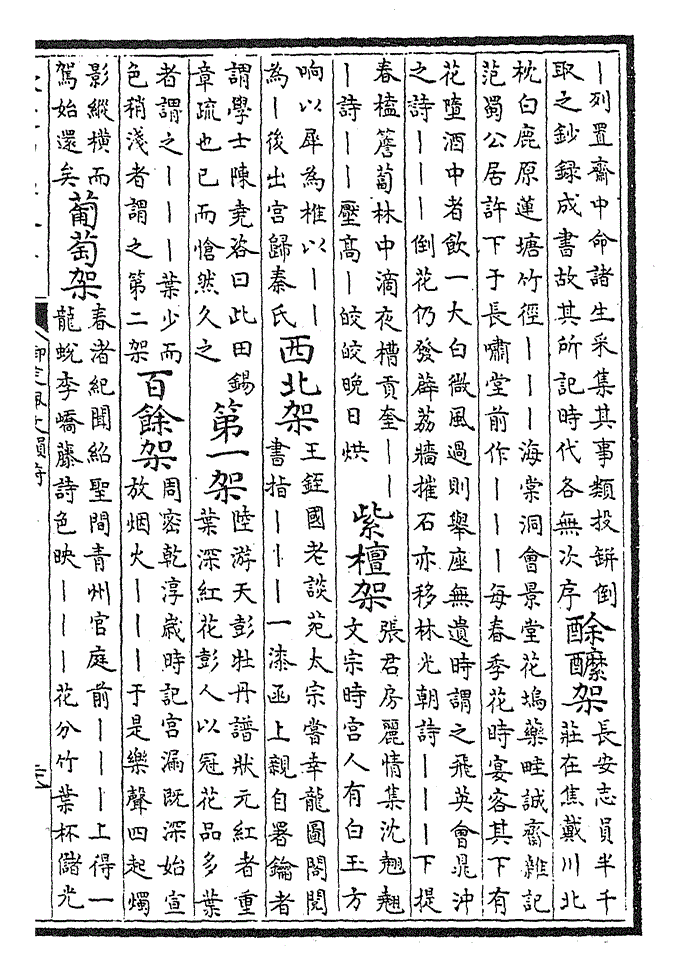 ｜列置齋中命諸生采集其事類投缾倒
取之鈔録成書故其所記時代各無次序
酴醾架
長安志員半千
莊在焦戴川北
枕白鹿原蓮塘竹徑｜｜｜海棠洞會景堂花塢藥畦誠齋雜記
范蜀公居許下于長嘯堂前作｜｜｜每春季花時宴客其下有
花墮酒中者飲一大白微風過則舉座無遺時謂之飛英會晁沖
之詩｜｜｜倒花仍發薜荔牆摧石亦移林光朝詩｜｜｜下提
春榼簷蔔林中滴夜槽貢奎｜｜
｜詩｜｜壓高｜皎皎晚日烘
紫檀架
張君房麗情集沈翹翹
文宗時宮人有白玉方
响以犀為椎以｜｜
為｜後出宮歸秦氏
西北架
王銍國老談苑太宗嘗幸龍圖閣閱
書指｜｜｜一漆函上親自署鑰者
謂學士陳堯咨曰此田錫
章疏也已而愴然久之
第一架
陸游天彭牡丹譜狀元紅者重
葉深紅花彭人以冠花品多葉
者謂之｜｜｜葉少而
色稍淺者謂之第二架
百餘架
周密乾淳歲時記宮漏既深始宣
放烟火｜｜｜于是樂聲四起燭
影縱橫而
駕始還矣
葡萄架
春渚紀聞紹聖間青州官庭前｜｜｜上得一
龍蛻李嶠藤詩色映｜｜｜花分竹葉杯儲光